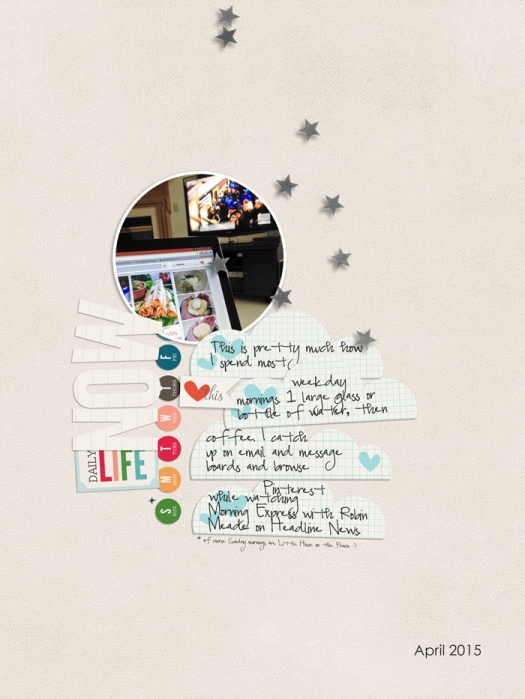 This is pretty much how
I spend most
this
weekday
mornings 1 large glass or
bottle of water, then
coffee. I catch
up on email and message
boards and browse
Pinterest
while watching
Morning Express with Robin
Meade on Headline News
NOW
DAILY
LIFE
F
T
W
T
M
S
* Of course Sunday mornings are Little House on the Prairie :)
April 2015